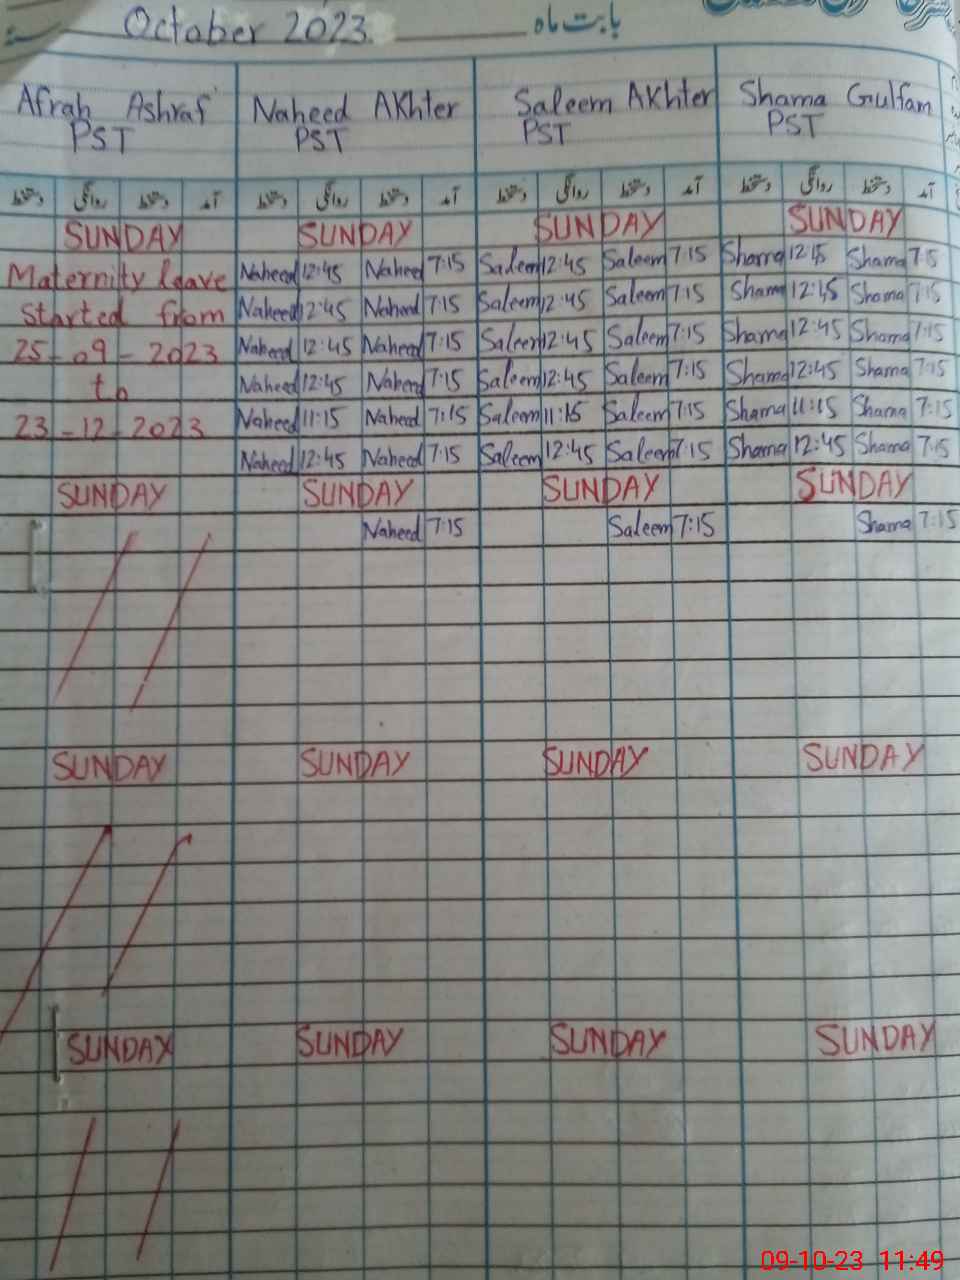 October 2023 بابت ماہ
Afrah Ashraf Naheed Akhter Saleem Akhter Shama Gulfam
PST PST PST PST
دستخط روانگی دستخط آمد دستخط روانگی دستخط آمد دستخط روانگی دستخط آمد دستخط روانگی دستخط آمد
SUNDAY SUNDAY SUNDAY SUNDAY
Maternity leave Naheed 12:45 Naheed 7:15 Saleem 12:45 Saleem 7:15 Shama 12:45 Shama 7:5
started from Naheed 12:45 Naheed 7:15 Saleem 12:45 Saleem 7:15 Shama 12:45 Shama 7:15
25-09-2023 Naheed 12:45 Naheed 7:15 Saleem 12:45 Saleem 7:15 Shama 12:45 Shama 7:15
to Naheed 12:45 Naheed 7:15 Saleem 12:45 Saleem 7:15 Shama 12:45 Shama 7:15
23-12-2023 Naheed 11:15 Naheed 7:15 Saleem 11:15 Saleem 7:15 Shama 11:15 Shama 7:15
Naheed 12:45 Naheed 7:15 Saleem 12:45 Saleem 7:15 Shama 12:45 Shama 7:15
SUNDAY SUNDAY SUNDAY SUNDAY
Naheed 7:15 Saleem 7:15 Shama 7:15
SUNDAY SUNDAY SUNDAY SUNDAY
SUNDAY SUNDAY SUNDAY SUNDAY
09-10-23 11:49